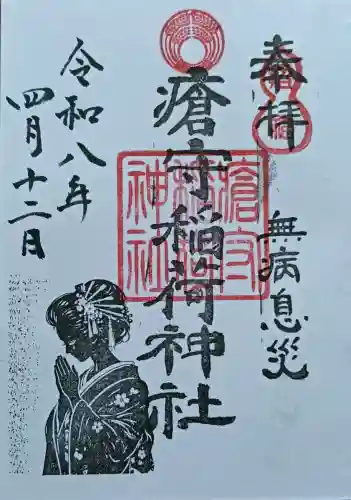 奉拝
無病息災
瘡守稲荷神社
瘡守
稲荷
神社
令和八年
四月十二日